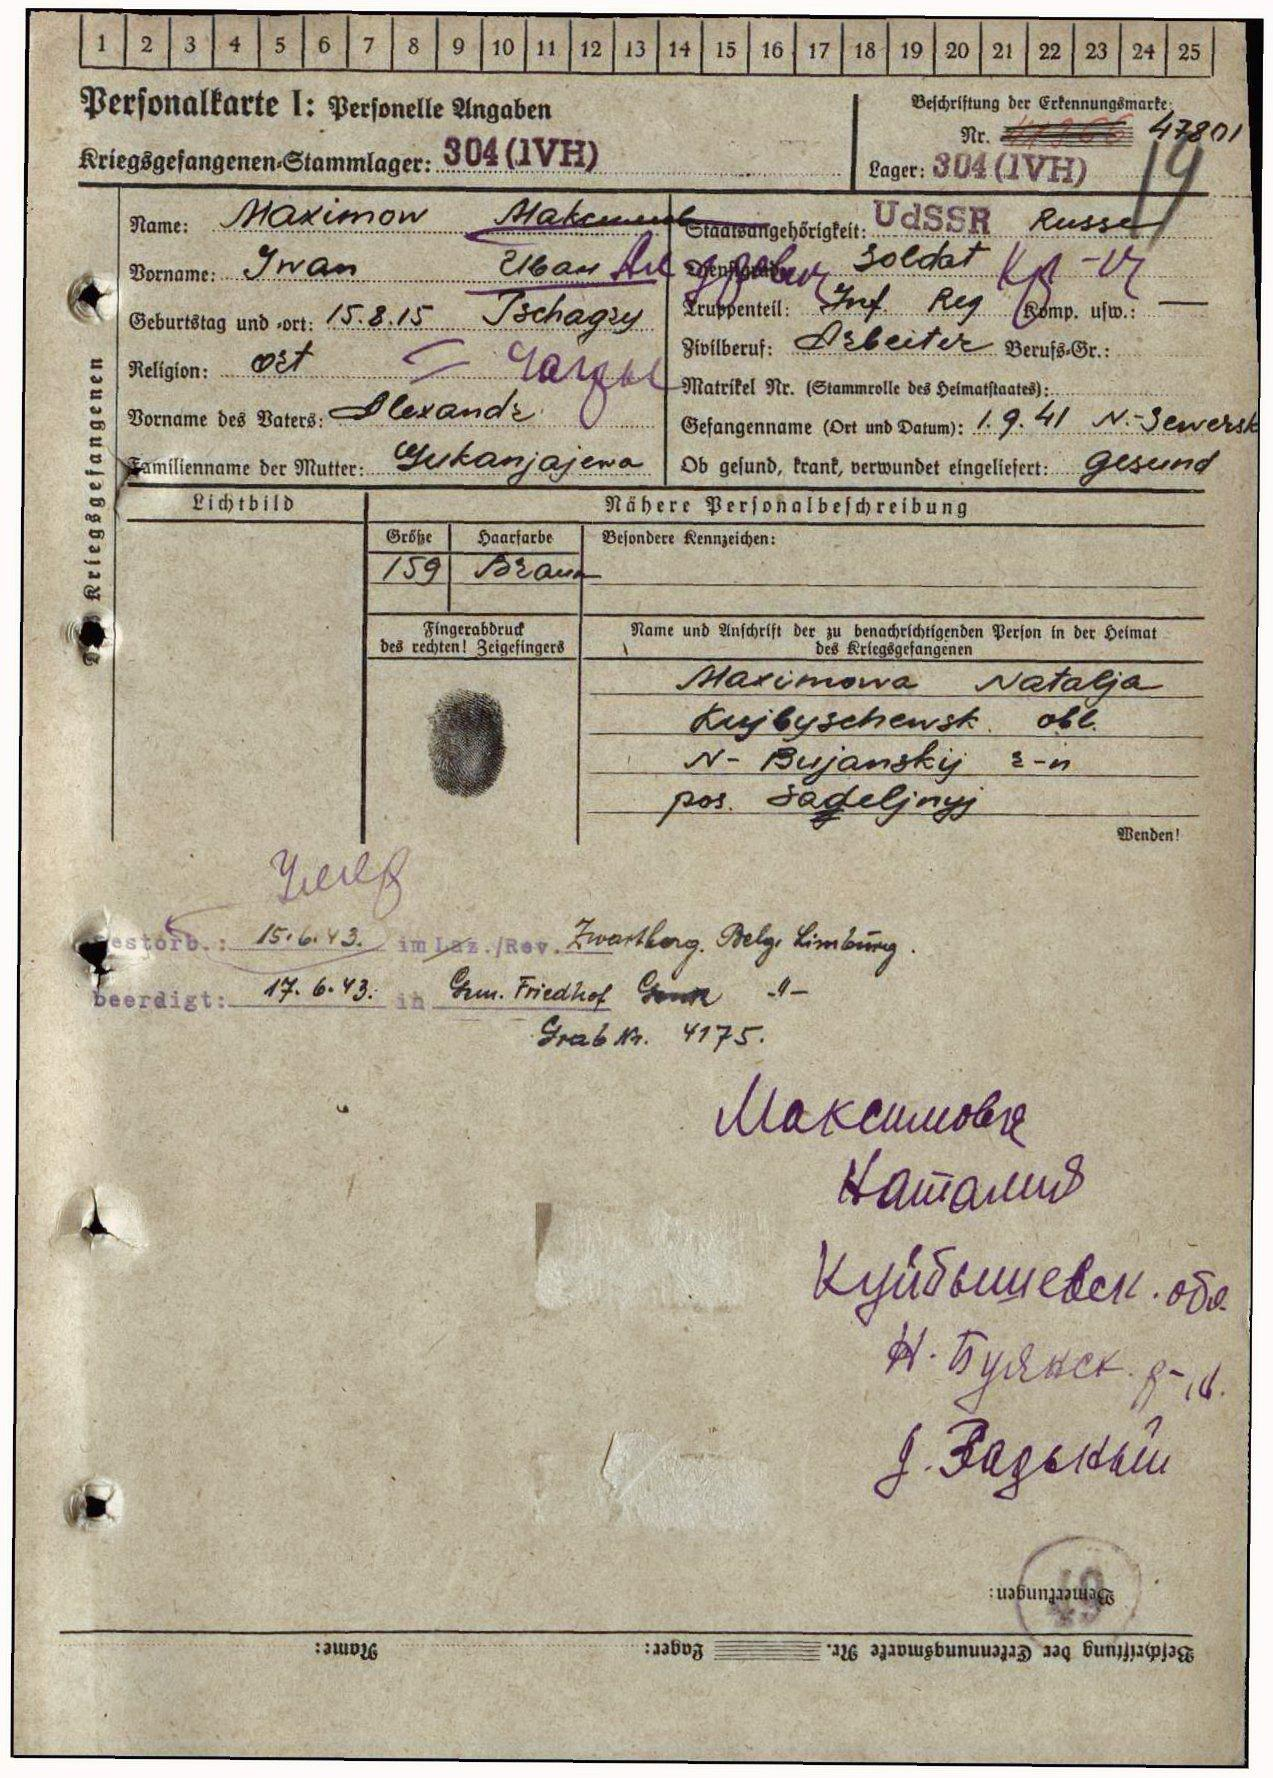 1 2 3 4 5 6 7 8 9 10 11 12 13 14 15 16 17 18 19 20 21 22 23 24 25
Personalkarte I: Personelle Angaben
Kriegsgefangenen-Stammlager: 304 (IVH)
Beschriftung der Erkennungsmarke
Nr. 47801
Lager: 304 (IVH)
19
Des Kriegsgefangenen
Name: Maximow
Vorname: Iwan Иван
Geburtstag und -ort: 15.8.15 Tschagry
Religion: ort Чагры
Vorname des Vaters: Alexandr
Familienname der Mutter: Gukanjajewa
Staatsangehörigkeit: UdSSR Russe
Dienstgrad: Soldat Кр-ц
Truppenteil: Inf. Reg Komp. usw.: —
Zivilberuf: Arbeiter Berufs-Gr.:
Matrikel Nr. (Stammrolle des Heimatstaates):
Gefangenname (Ort und Datum): 1.9.41 N.-Sewersk
Ob gesund, krank, verwundet eingeliefert: gesund
Lichtbild
Nähere Personalbeschreibung
Größe Haarfarbe Besondere Kennzeichen:
159 Braun
Fingerabdruck
des rechten! Zeigefingers
Name und Anschrift der zu benachrichtigenden Person in der Heimat
des Kriegsgefangenen
Maximowa Natalja
Kujbyschewsk. obl.
N- Bujanskij r-n
pos. Sadeljnyj
Wenden!
Умер
gestorb.: 15.6.43. im Laz./Rev. Zwartberg. Belg. Limburg.
beerdigt: 17.6.43. in Gem. Friedhof -"-
Grab Nr. 4175.
Максимова
Наталия
Куйбышевск. обл.
Н. Буянск. р-н.
д. Задьный
49
Bemerkungen:
Name: Lager: Beschriftung der Erkennungsmarke Nr.